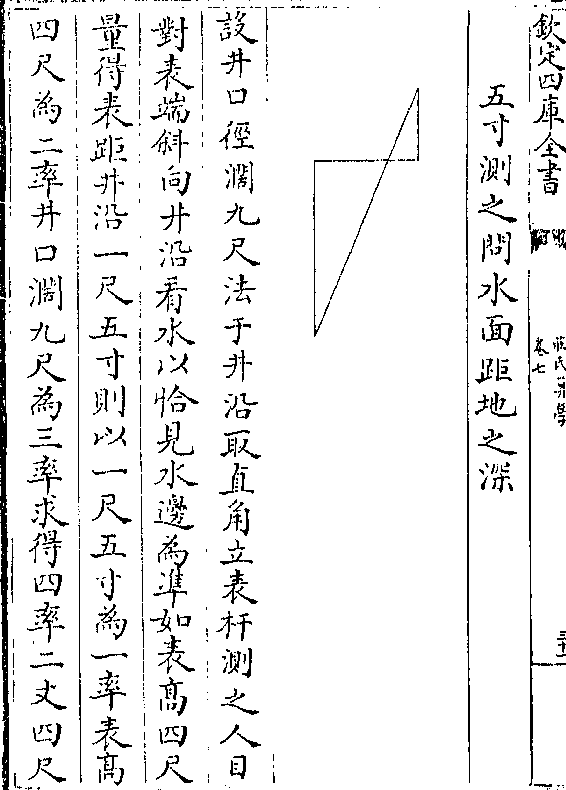 欽定四庫全書
卷七
五寸測之問水面距地之深
設井口徑濶九尺法于井沿取直角立表杆測之人目
對表端斜向井沿看水以恰見水邊為準如表高四尺
量得表距井沿一尺五寸則以一尺五寸為一率表高
四尺為二率井口濶九尺為三率求得四率二丈四尺